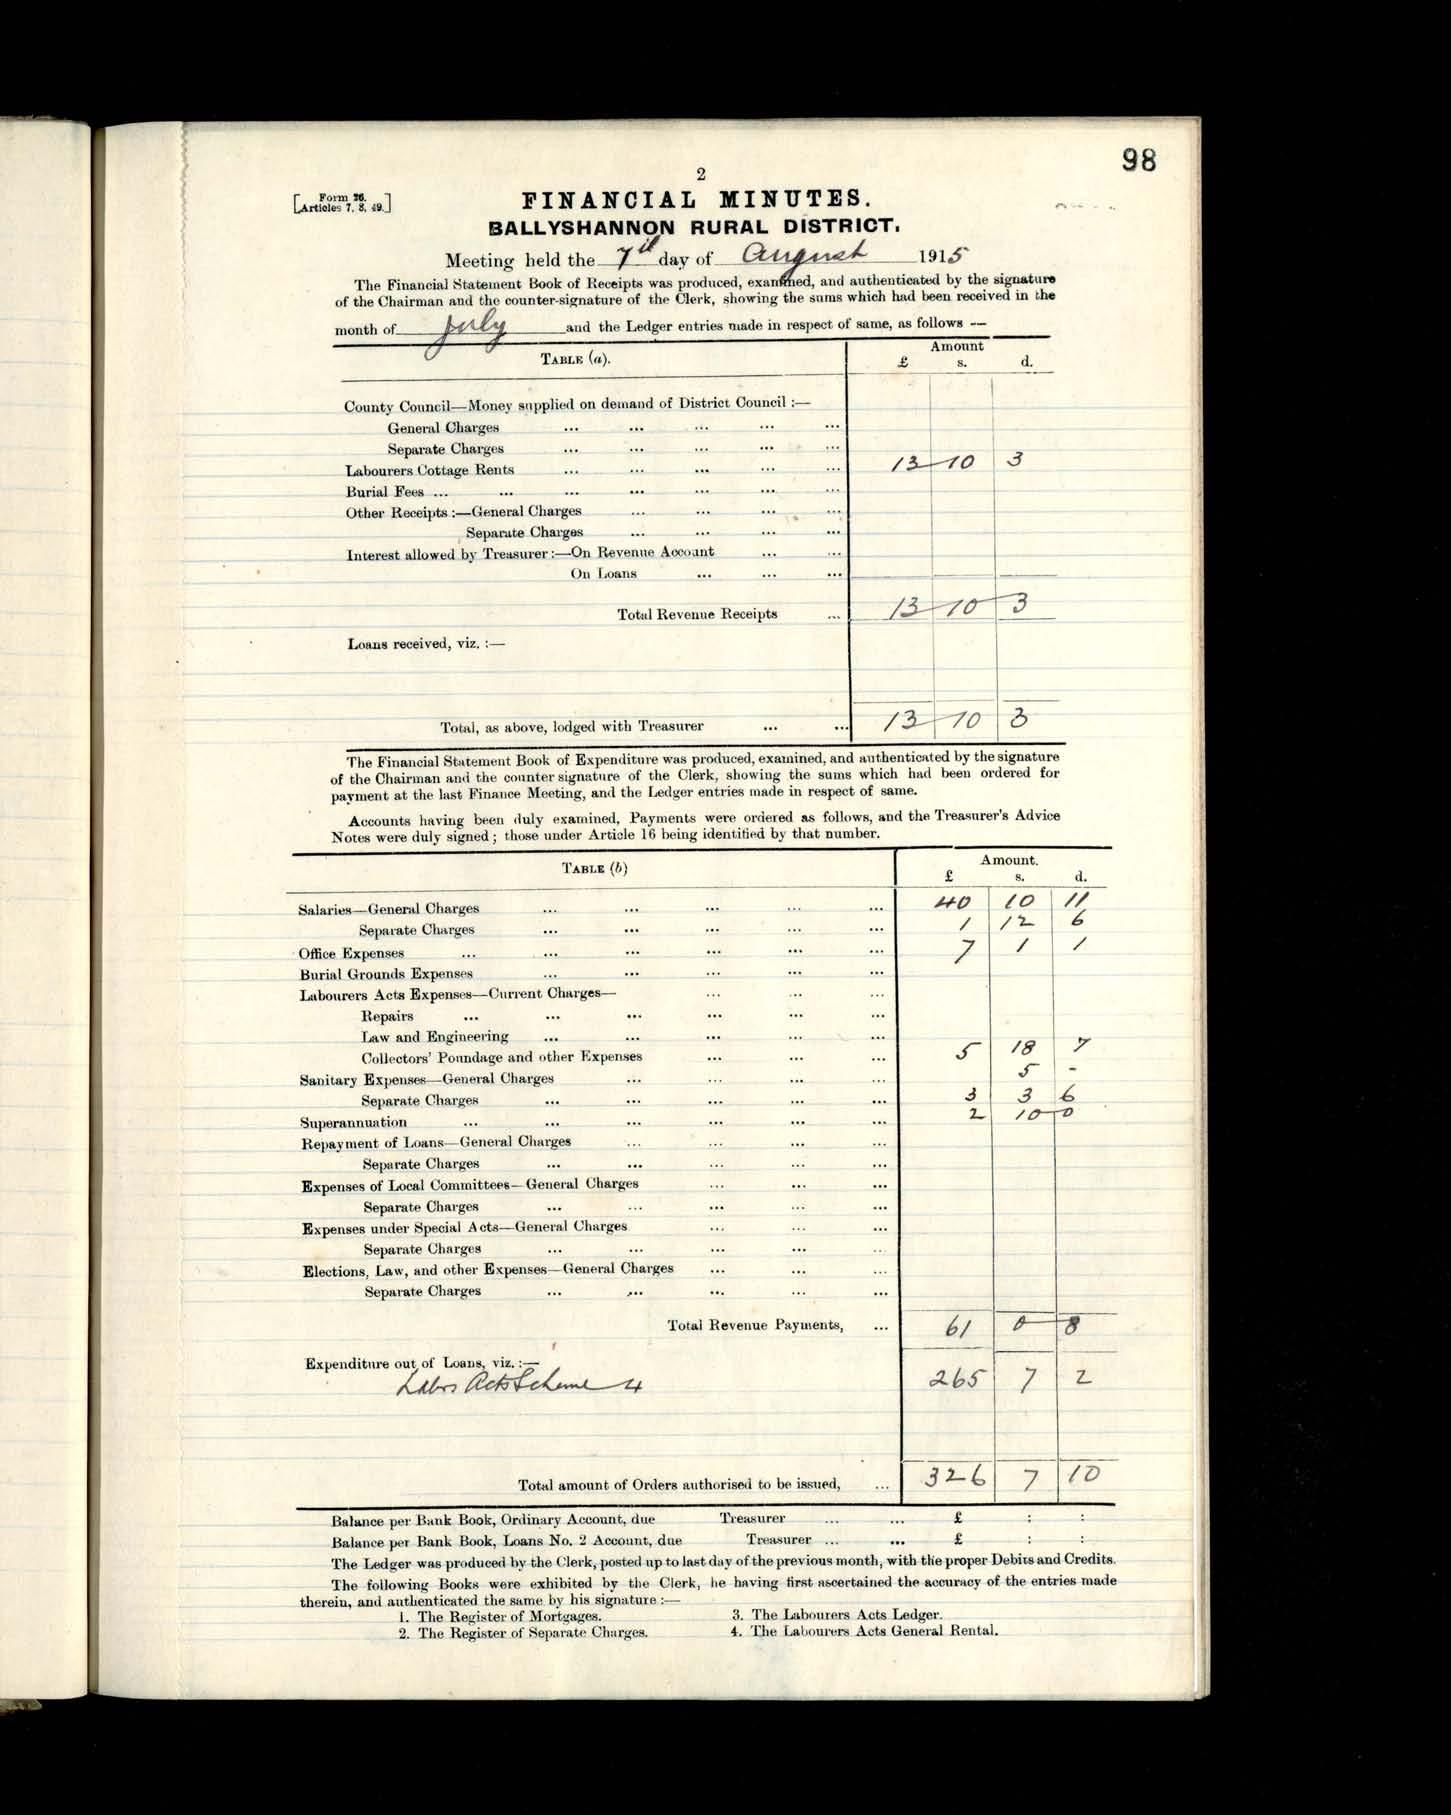 98
2
[Form 26. Articles 7, 8, 49.]
FINANCIAL MINUTES.
BALLYSHANNON RURAL DISTRICT.
Meeting held the 7th day of August 1915
The Financial Statement Book of Receipts was produced, examined, and authenticated by the signature
of the Chairman and the counter-signature of the Clerk, showing the sums which had been received in the
month of July and the Ledger entries made in respect of same, as follows —
TABLE (a). Amount
£ s. d.
County Council—Money supplied on demand of District Council :—
General Charges ... ... ... ... ...
Separate Charges ... ... ... ... ...
Labourers Cottage Rents ... ... ... ... ... 13 10 3
Burial Fees ... ... ... ... ... ... ...
Other Receipts :—General Charges ... ... ... ...
Separate Charges ... ... ... ...
Interest allowed by Treasurer :—On Revenue Account ... ...
On Loans ... ... ...
Total Revenue Receipts ... 13 10 3
Loans received, viz. :—
Total, as above, lodged with Treasurer ... ... 13 10 3
The Financial Statement Book of Expenditure was produced, examined, and authenticated by the signature
of the Chairman and the counter signature of the Clerk, showing the sums which had been ordered for
payment at the last Finance Meeting, and the Ledger entries made in respect of same.
Accounts having been duly examined, Payments were ordered as follows, and the Treasurer's Advice
Notes were duly signed; those under Article 16 being identified by that number.
TABLE (b) Amount.
£ s. d.
Salaries—General Charges ... ... ... ... ... 40 10 11
Separate Charges ... ... ... ... ... 1 12 6
Office Expenses ... ... ... ... ... ... 7 1 1
Burial Grounds Expenses ... ... ... ... ...
Labourers Acts Expenses—Current Charges— ... ... ...
Repairs ... ... ... ... ... ...
Law and Engineering ... ... ... ... ...
Collectors' Poundage and other Expenses ... ... ... 5 18 7
Sanitary Expenses—General Charges ... ... ... ... 5 -
Separate Charges ... ... ... ... ... 3 3 6
Superannuation ... ... ... ... ... ... 2 10 0
Repayment of Loans—General Charges ... ... ... ...
Separate Charges ... ... ... ... ...
Expenses of Local Committees—General Charges ... ... ...
Separate Charges ... ... ... ... ...
Expenses under Special Acts—General Charges ... ... ...
Separate Charges ... ... ... ... ...
Elections, Law, and other Expenses—General Charges ... ... ...
Separate Charges ... ... ... ... ...
Total Revenue Payments, ... 61 0 8
Expenditure out of Loans, viz. :—
Labrs Acts Scheme 4 265 7 2
Total amount of Orders authorised to be issued, ... 326 7 10
Balance per Bank Book, Ordinary Account, due Treasurer ... ... £ : :
Balance per Bank Book, Loans No. 2 Account, due Treasurer ... ... £ : :
The Ledger was produced by the Clerk, posted up to last day of the previous month, with the proper Debits and Credits.
The following Books were exhibited by the Clerk, he having first ascertained the accuracy of the entries made
therein, and authenticated the same by his signature :—
1. The Register of Mortgages. 3. The Labourers Acts Ledger.
2. The Register of Separate Charges. 4. The Labourers Acts General Rental.